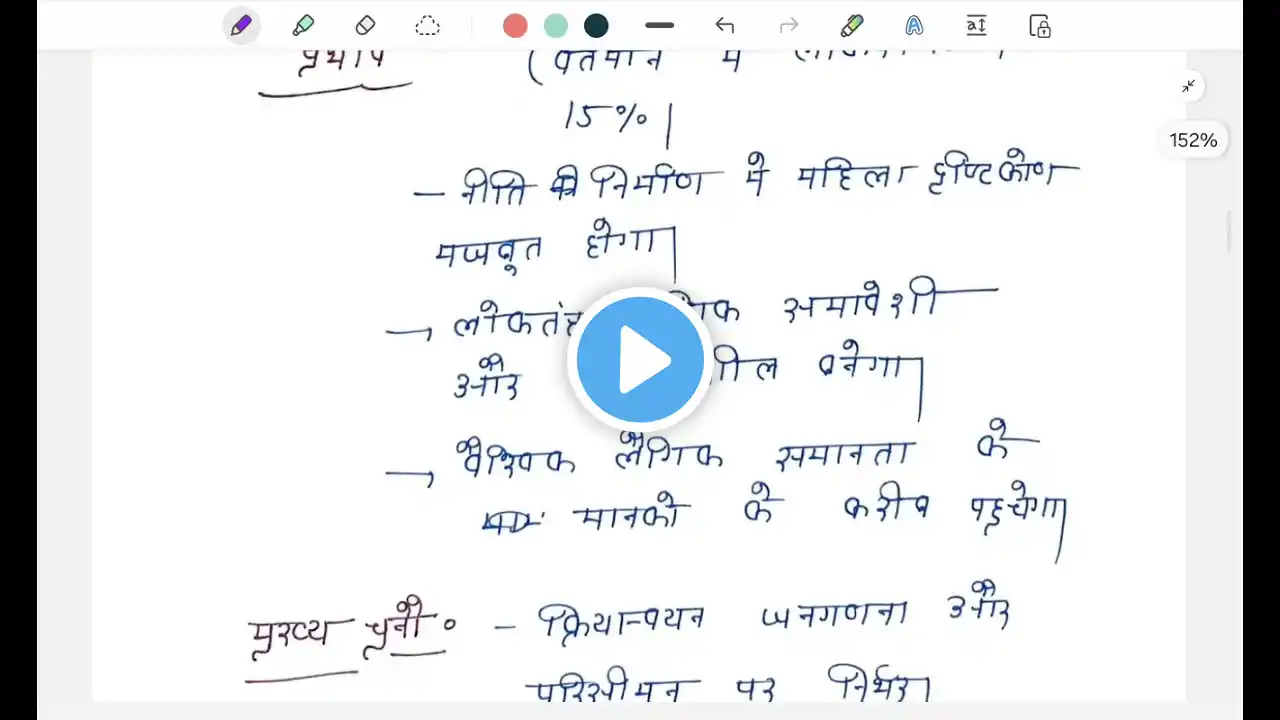 प्रभाव (वर्तमान में
15%|
- नीति निर्माण में महिला दृष्टिकोण
मजबूत होगा|
→ लोकतंत्र समावेशी
और बनेगा|
→ वैश्विक लैंगिक समानता के
मानको के करीब पहुचेगा|
मुख्य चुनौ॰ - क्रियान्वयन जनगणना और
परिसीमन पर निर्भर|
152%